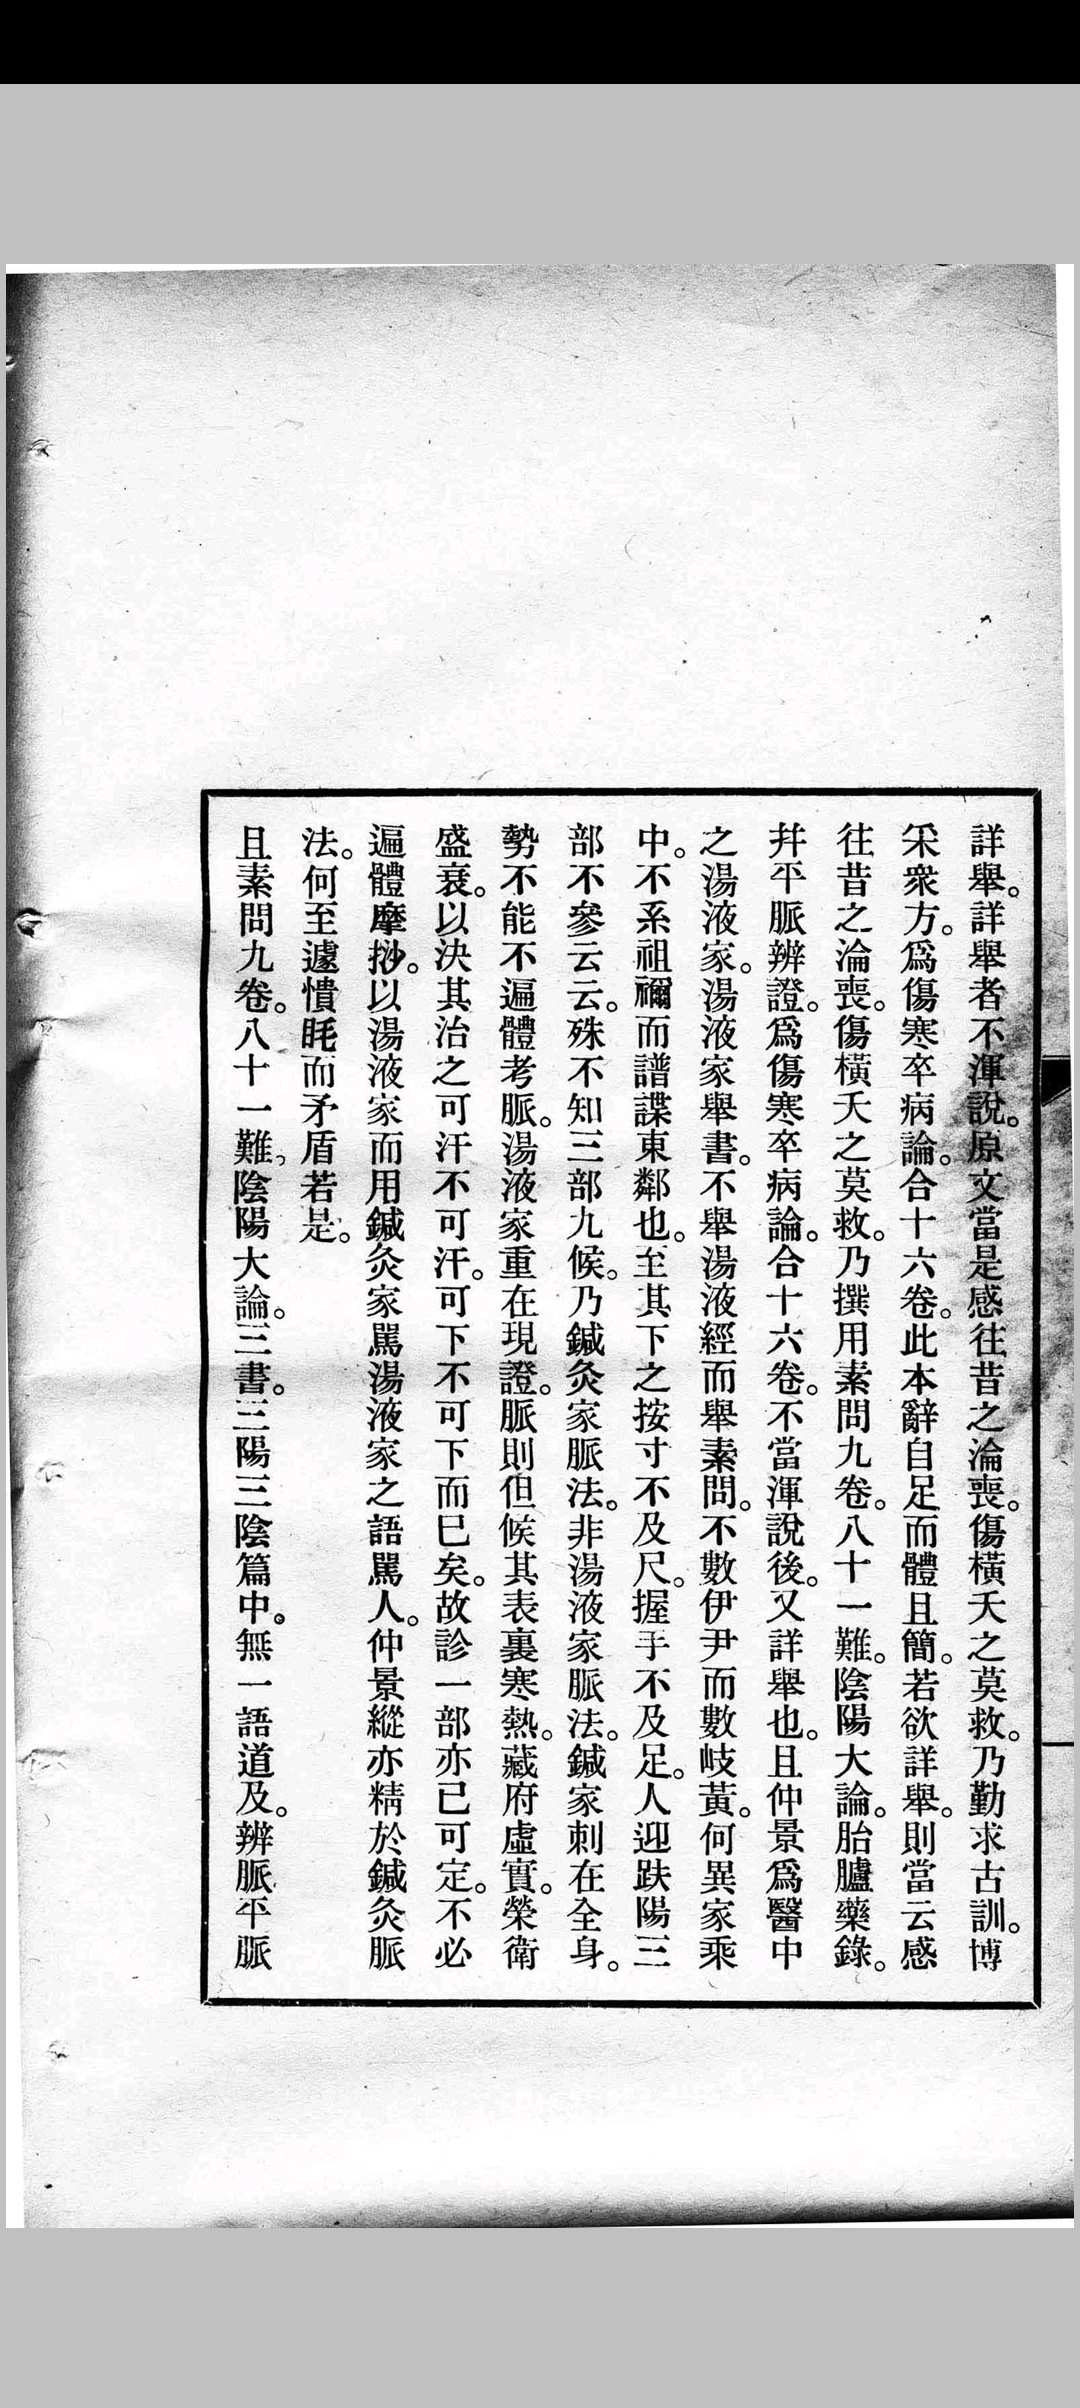 詳舉。詳舉者不渾說。原文當是感往昔之淪喪。傷橫夭之莫救。乃勤求古訓。博
采衆方。爲傷寒卒病論。合十六卷。此本辭自足而體且簡。若欲詳舉。則當云感
往昔之淪喪。傷橫夭之莫救。乃撰用素問九卷。八十一難。陰陽大論。胎臚藥錄。
幷平脈辨證。爲傷寒卒病論。合十六卷。不當渾說後。又詳舉也。且仲景爲醫中
之湯液家。湯液家舉書。不舉湯液經而舉素問。不數伊尹而數岐黃。何異家乘
中。不系祖禰而譜諜東鄰也。至其下之按寸不及尺。握手不及足。人迎趺陽三
部不參云云。殊不知三部九候。乃鍼灸家脈法。非湯液家脈法。鍼家刺在全身。
勢不能不遍體考脈。湯液家重在現證。脈則但候其表裏寒熱。藏府虛實。榮衛
盛衰。以決其治之可汗不可汗。可下不可下而已矣。故診一部亦已可定。不必
遍體摩挱。以湯液家而用鍼灸家罵湯液家之語罵人。仲景縱亦精於鍼灸脈
法。何至遽憒眊而矛盾若是。
且素問九卷。八十一難、陰陽大論。三書。三陽三陰篇中。無一語道及。辨脈平脈